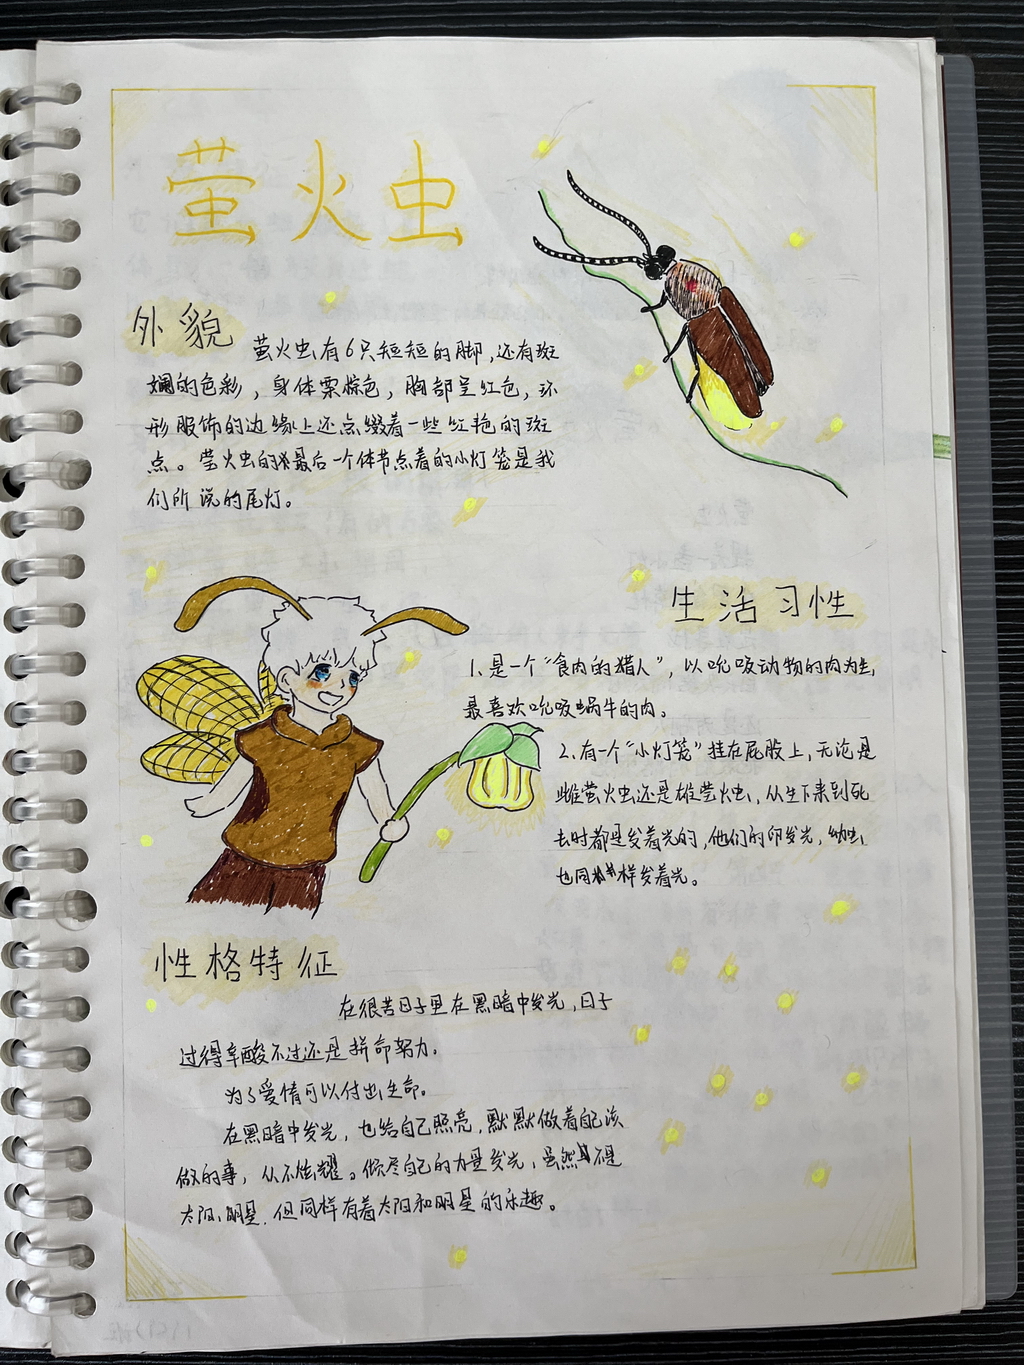 萤火虫
外貌
萤火虫有6只短短的脚,还有斑
斓的色彩,身体栗棕色,胸部呈红色,环
形服饰的边缘上还点缀着一些红艳的斑
点。萤火虫的最后一个体节点着的小灯笼是我
们所说的尾灯。
生活习性
1.是一个“食肉的猎人”,以吮吸动物的肉为生,
最喜欢吮吸蜗牛的肉。
2.有一个“小灯笼”挂在屁股上,无论是
雌萤火虫还是雄萤火虫,从生下来到死
去时都是发着光的,他们的卵发光,幼虫
也同样发着光。
性格特征
在很苦日子里在黑暗中发光,日子
过得辛酸不过还是拼命努力。
为了爱情可以付出生命。
在黑暗中发光,也给自己照亮,默默做着自己该
做的事,从不炫耀。倾尽自己的力量发光,虽然不是
太阳、明星,但同样有着太阳和明星的乐趣。